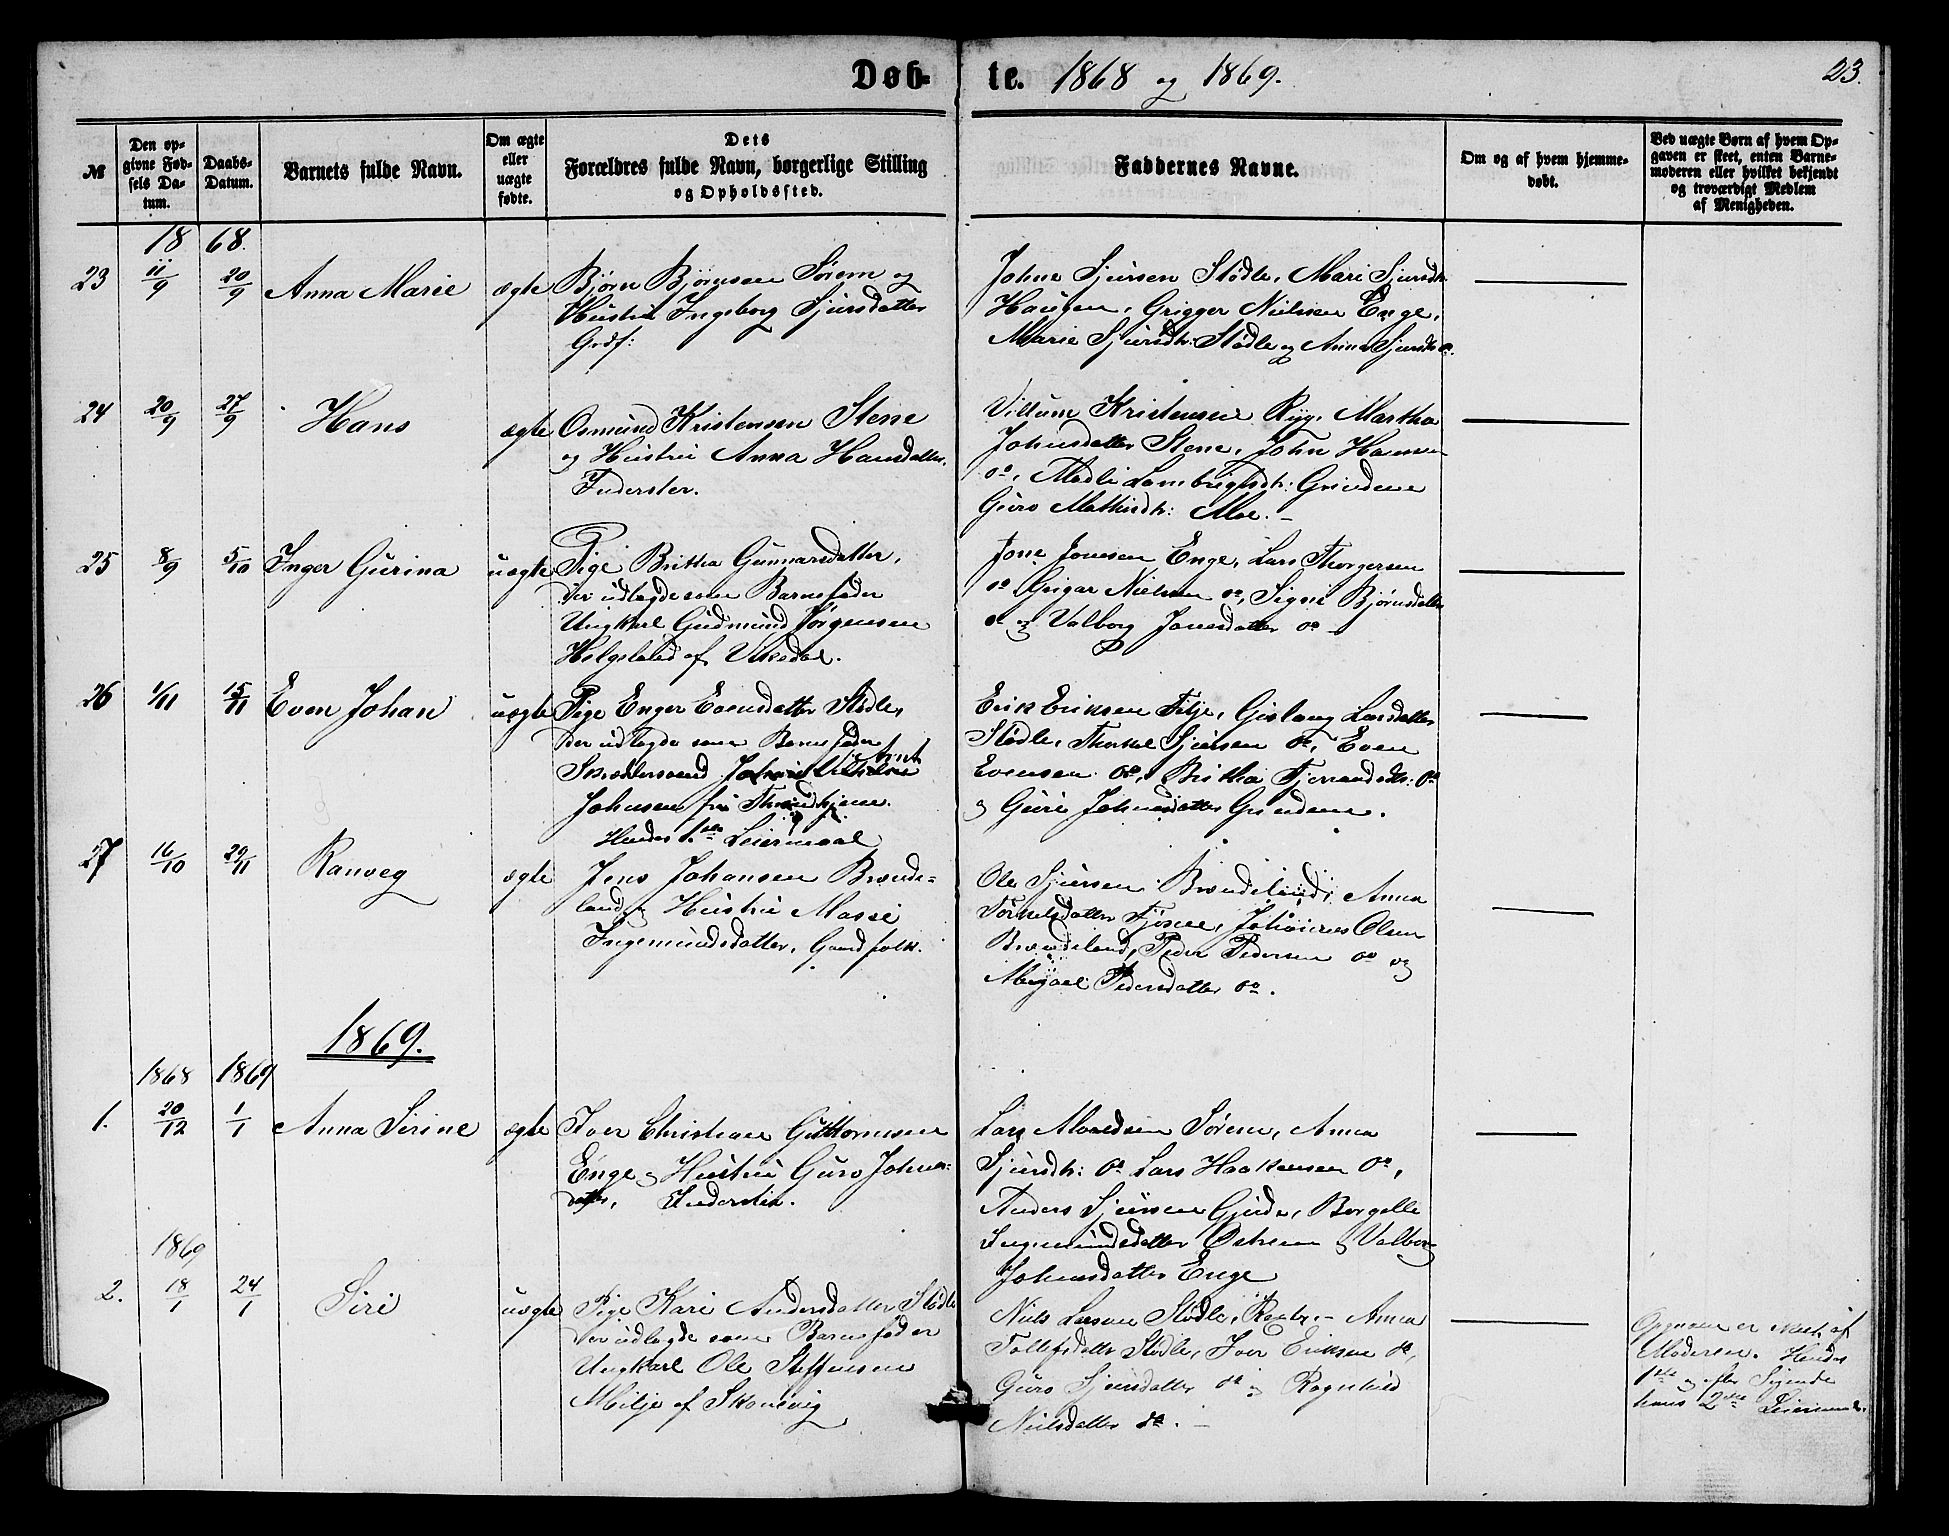 Døb-te. 1868 og 1869.
23.
№
Den op-
givne Fød-
sels Da-
tum.
Daabs-
Datum.
Barnets fulde Navn.
Om ægte
eller
uægte
fødte.
Dets
Forældres fulde Navn, borgerlige Stilling
og Opholdssted.
Faddernes Navne.
Om og af hvem hjemme-
døbt.
Ved uægte Børn af hvem Op-
gaven er skeet, enten Barne-
moderen eller hvilket bekjendt
og troværdigt Medlem
af Menigheden.
1868
23 11/9 20/9 Anna Marie ægte
Bjørn Bjørnsen Sørem og
Hustru Ingeborg Sjursdatter
Grdf:
Johne Sjursen Stødle, Mari Sjursdtr
Haugen, Grigger Nielsen Enge,
Marie Sjursdtr: Stødle og Anna Sjursdtr do.
24 20/9 27/9 Hans ægte
Osmund Kristensen Stene
og Hustru Anna Hansdatter,
Inderster.
Villum Kristensen Ryg, Martha
Johnsdatter Stene, John Hansen
do, Madli Lambrigtsdtr: Grindene
Guro Mathisdtr: Moe.
25 8/9 5/10 Inger Gurina uægte
Pige Britha Gunnarsdatter,
der udlagde som Barnefader
Ungkarl Gudmund Jørgensen
Helgeland af Vikedal.
Jone Jonesen Enge, Lars Thorgersen
do Grigar Nielsen do, Signe Bjørnsdatter
do og Valborg Jonesdatter do
26 1/11 15/11 Even Johan uægte
Pige Enger Evensdatter Stødle,
der udlagde som Barnefader
Skræddersvend
Johnsen fra Throndhjem.
Hendes 1ste Leiermaal
Erik Eriksen Fitje, Gislaug Larsdatter
Stødle, Thorkel Sjursen do, Even
Evensen do, Britha Tjerandsdtr: do
og Guri Johnsdatter Grindene.
27 16/10 29/11 Ranveg ægte
Jens Johansen Brænde-
land og Hustru Massi
Ingemundsdatter, Gaardfolk.
Ole Sjursen Brændeland, Anna
Tørkelsdatter Fjøsne, Johannes Olsen
Brændeland, Peder Pedersen do og
Abigael Pedersdatter do.
1869.
1868 1869
1. 20/12 1/1 Anna Serine ægte
Iver Christian Guttormsen
Enge og Hustru Guro Johns-
datter, Inderster.
Lars Amundsen Sørem, Anna
Sjursdtr: do Lars Haakensen do,
Anders Sjursen Gjerde, Borgelle
Ingemundsdatter Østrem og Valborg
Johnsdatter Enge
1869
2. 18/1 24/1 Siri uægte
Pige Kari Andersdatter Stødle
der udlagde som Barnefader
Ungkarl Ole Steffensen
Milje af Skonevig
Niels Larsen Stødle, Anna
Tollefsdatter Stødle, Iver Eriksen do,
Guro Sjursdatter do og Ragnhild
Nielsdatter do.
Opgaven er skeet af
Moderen. Hendes
1ste og efter Sigende
hans 2det Leiermaal.